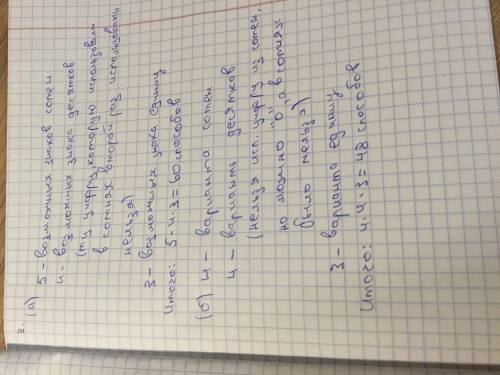 3.
(а) 5 - возможных знаков сотен
4 - возможных знака десятков
(ту цифру, которую использовали
в сотнях второй раз использовать
нельзя)
3 - возможных знака единиц
Итого: 5·4·3=60 способов
(б) 4 - варианта сотен
4 - варианта десятков
(нельзя исп. цифру из сотен,
но можно "0", а в сотнях
было нельзя)
3 - варианта единиц
Итого: 4·4·3=48 способов